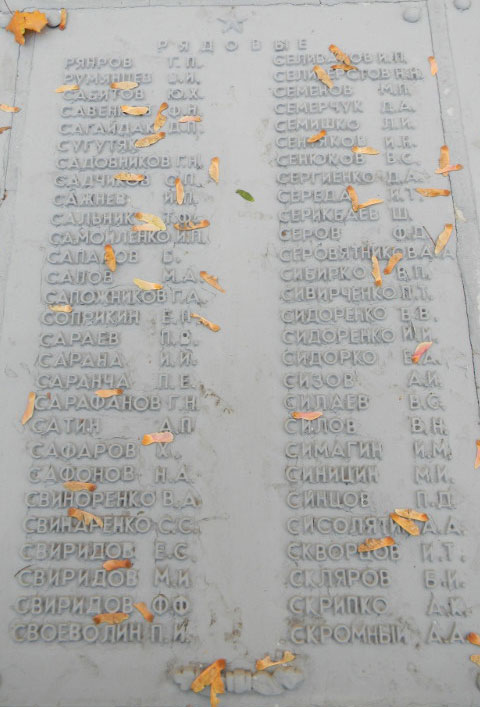 РЯДОВЫЕ
РЯНРОВ Г.П.
РУМЯНЦЕВ В.И.
САБИТОВ Ю.Х.
Ф.Н.
САГАЙДАК Д.П.
СУГУТЯК
САДОВНИКОВ Г.Н.
САДЧИКОВ
САЖНЕВ И.П.
САЛЬНИК Т.Ф.
САМОЙЛЕНКО И.П.
САПАРОВ Б.
САПОВ М.А.
САПОЖНИКОВ Г.А.
СОПРИКИН Е.Н.
САРАЕВ П.Я.
САРАНА И.И.
САРАНЧА П.Е.
САРАФАНОВ Г.Н.
САТИН А.П.
САФАРОВ Х.
САФОНОВ Н.А.
СВИНОРЕНКО В.А.
СВИНАРЕНКО С.С.
СВИРИДОВ Е.С.
СВИРИДОВ М.И.
СВИРИДОВ Ф.Ф.
СВОЕВОЛИН П.И.
СЕЛИВАНОВ И.П.
СЕЛИВЕРСТОВ Н.Н.
СЕМЕНОВ М.П.
СЕМЕРЧУК Д.А.
СЕМИШКО Л.И.
СЕННЯКОВ И.Н.
СЕНЮКОВ В.С.
СЕРГИЕНКО Д.А.
СЕРЕДА И.Т.
СЕРИКБАЕВ Ш.
СЕРОВ Ф.Д.
СЕРОВЯТНИКОВ А.А.
СИБИРКО В.П.
СИВИРЧЕНКО П.Т.
СИДОРЕНКО В.Е.
СИДОРЕНКО И.И.
СИДОРКО
СИЗОВ А.И.
СИЛАЕВ В.С.
СИЛОВ В.Н.
СИМАГИН И.М.
СИНИЦИН М.И.
СИНЦОВ П.Д.
СИСОЛЯТИН А.А.
СКВОРЦОВ И.Т.
СКЛЯРОВ Б.И.
СКРИПКО А.К.
СКРОМНЫЙ А.А.